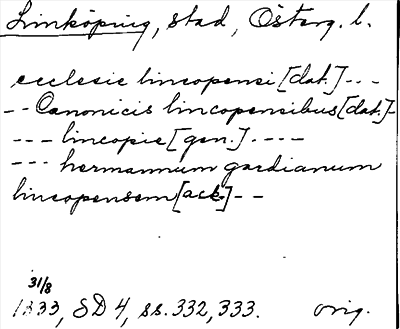 Linköping, stad, Österg. l.
ecclesie lincopensi [dat.] - - -
- - Canonicis lincopensibus [dat.] -
- - - lincopie [gen.]. - - - -
- - - hermannum gardianum
lincopensem [ack.] - -
31/8
1333, SD 4, ss. 332, 333. orig.